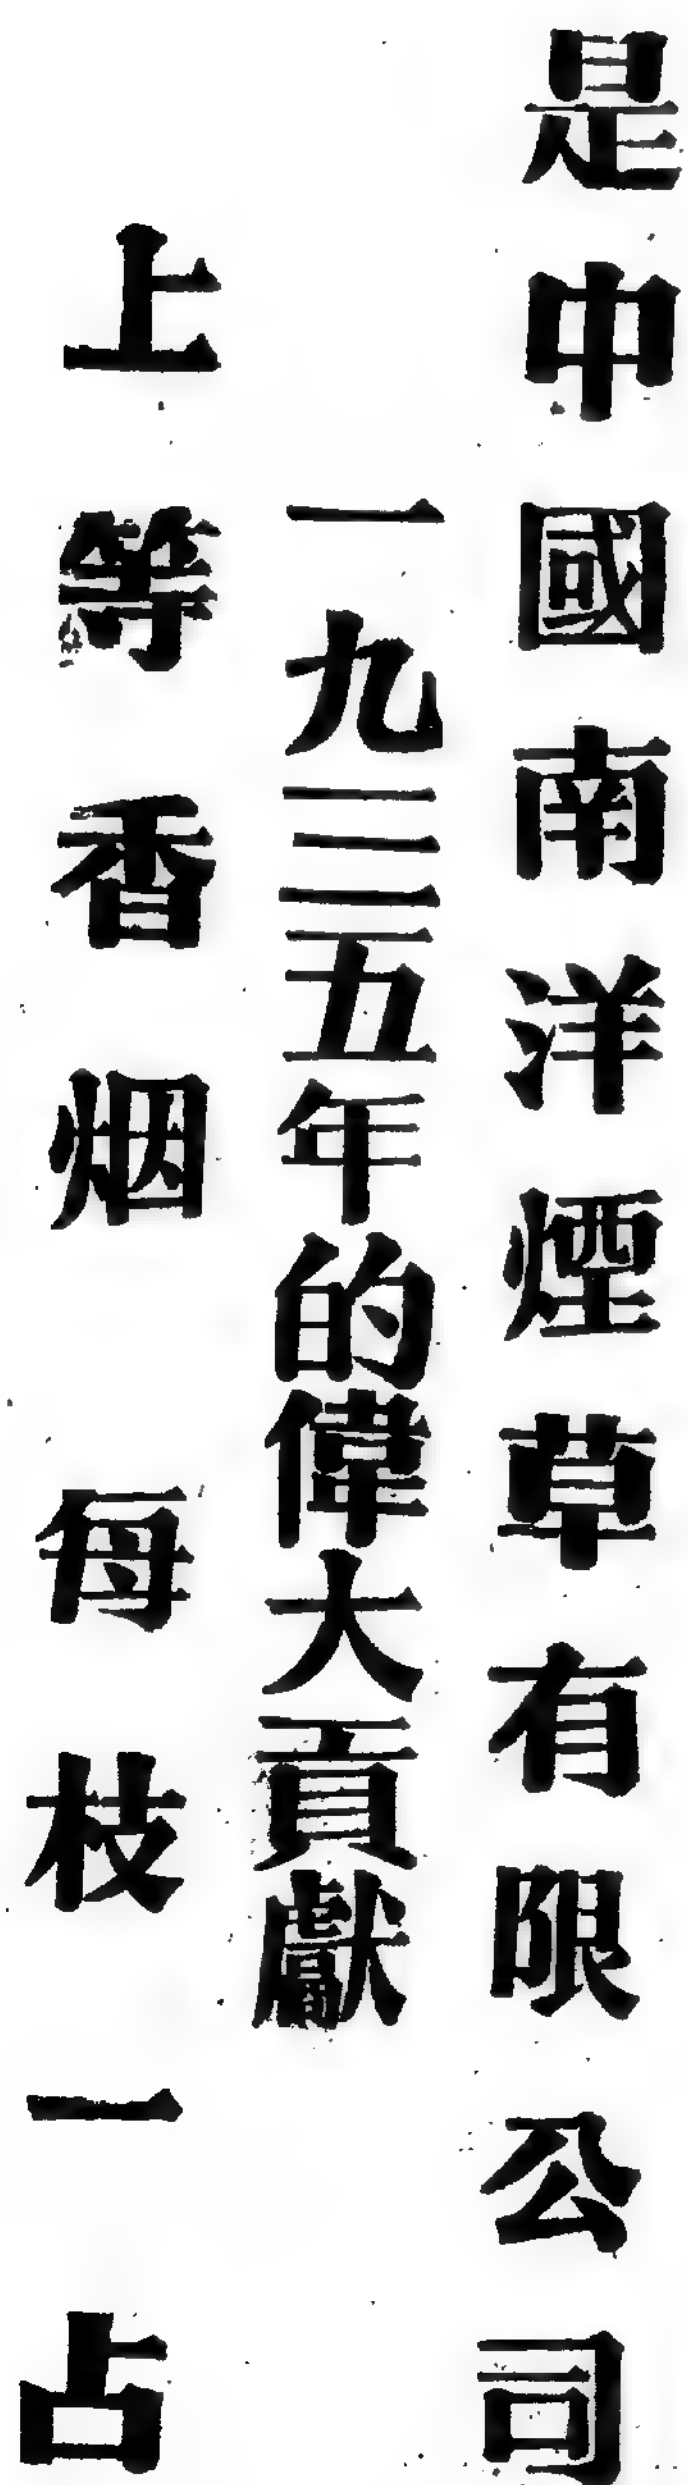 是中國南洋煙草有限公司
一九三五年的偉大貢獻
上等香烟 每枝一占